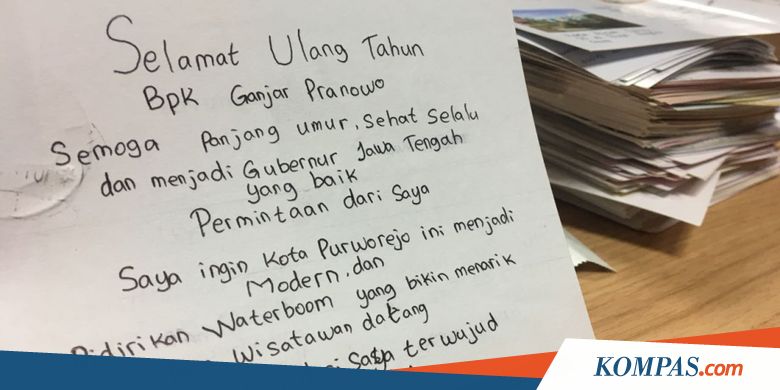 Selamat Ulang Tahun
Bpk Ganjar Pranowo
Semoga Panjang umur, Sehat Selalu
dan menjadi Gubernur Jawa Tengah
yang baik
Permintaan dari Saya
Saya ingin Kota Purworejo ini menjadi
Modern, dan
Didirikan Waterboom yang bikin menarik
Wisatawan datang
saya terwujud
KOMPAS.com